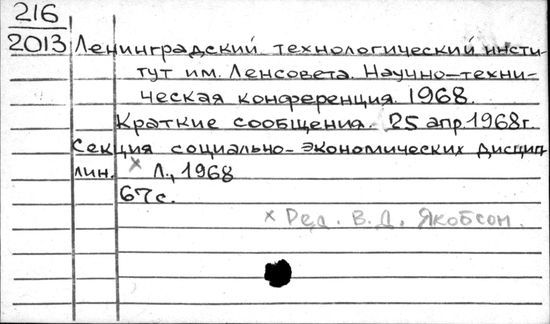 216
2013
Ленинградский технологический инсти-
тут им. Ленсовета. Научно-техни-
ческая конференция. 1968.
Краткие сообщения. 25 апр. 1968г.
Секция социально-экономических дисцип-
лин. × Л., 1968
67с.
× Ред. В.Д. Якобсон.